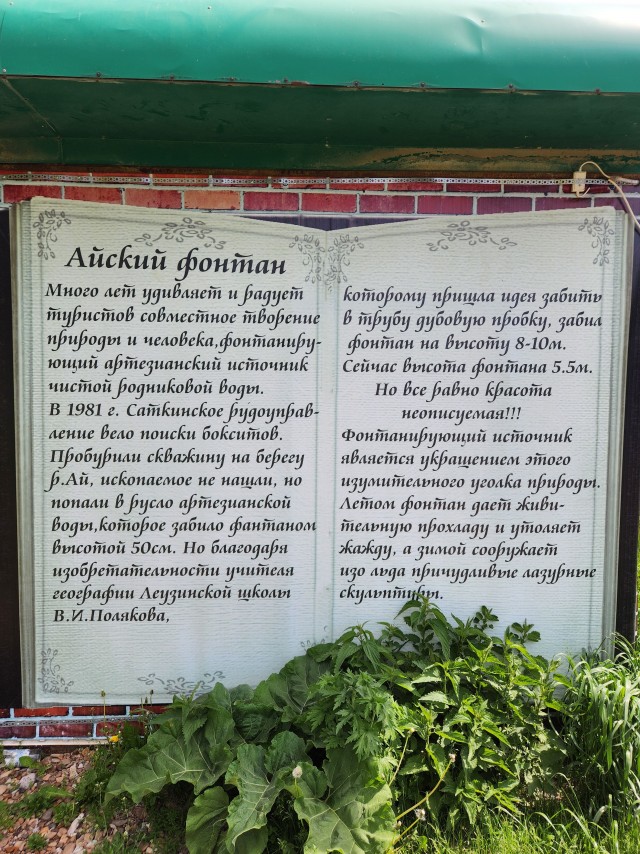 Айский фонтан
Много лет удивляет и радует
туристов совместное творение
природы и человека,фонтаниру-
ющий артезианский источник
чистой родниковой воды.
В 1981 г. Саткинское рудоуправ-
ление вело поиски бокситов.
Пробурили скважину на берегу
р.Ай, ископаемое не нашли, но
попали в русло артезианской
воды,которое забило фантаном
высотой 50см. Но благодаря
изобретательности учителя
географии Леузинской школы
В.И.Полякова,
которому пришла идея забить
в трубу дубовую пробку, забил
фонтан на высоту 8-10м.
Сейчас высота фонтана 5.5м.
Но все равно красота
неописуемая!!!
Фонтанирующий источник
является украшением этого
изумительного уголка природы.
Летом фонтан дает живи-
тельную прохладу и утоляет
жажду, а зимой сооружает
изо льда причудливые лазурные
скульптуры.